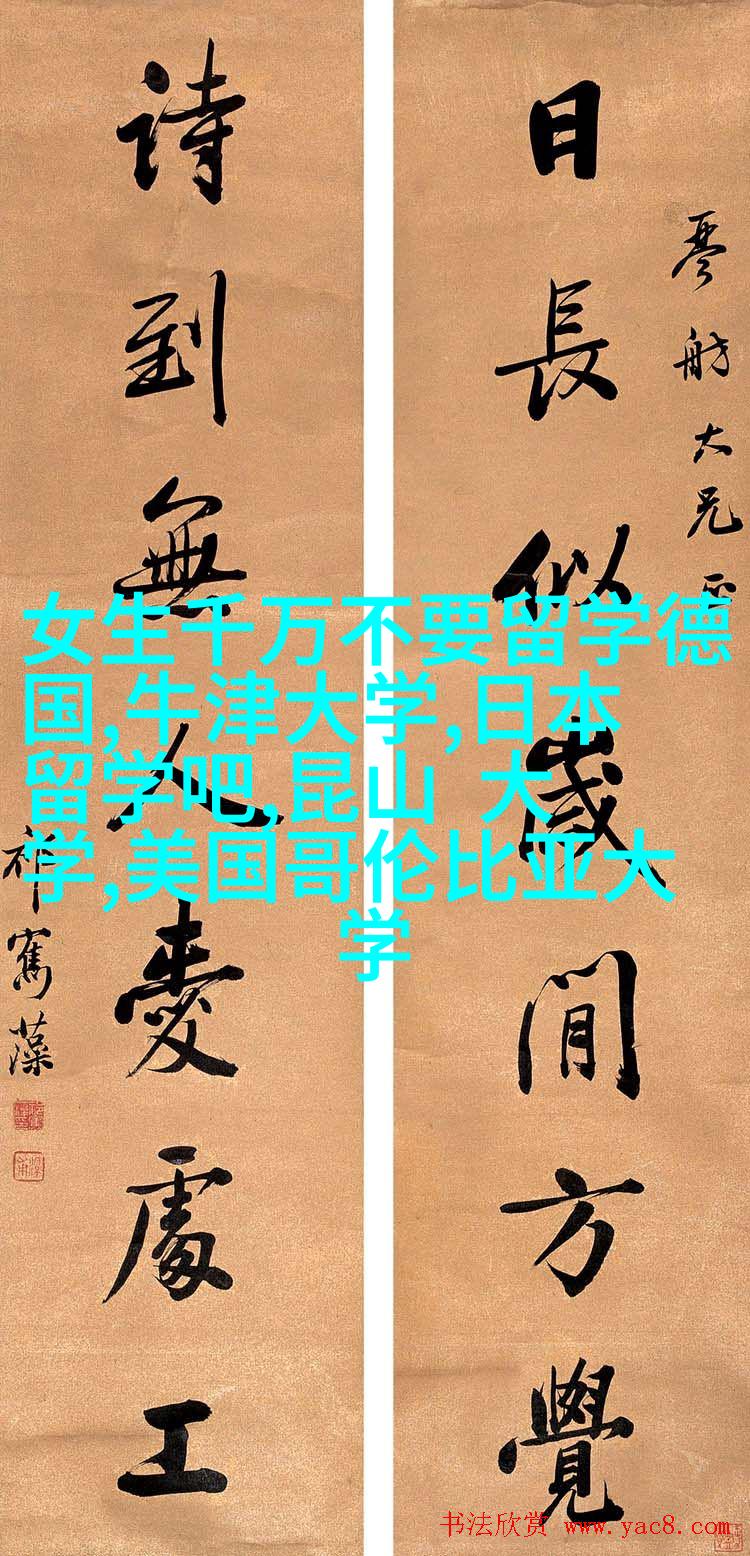 日長似歲閒方覺
琴舫大兄正
詩到無人愛處工
祁寯藻
女生千万不要留学德
国,牛津大学,日本
留学吧,昆山 大
学,美国哥伦比亚大
学
书法欣赏 www.yac8.com